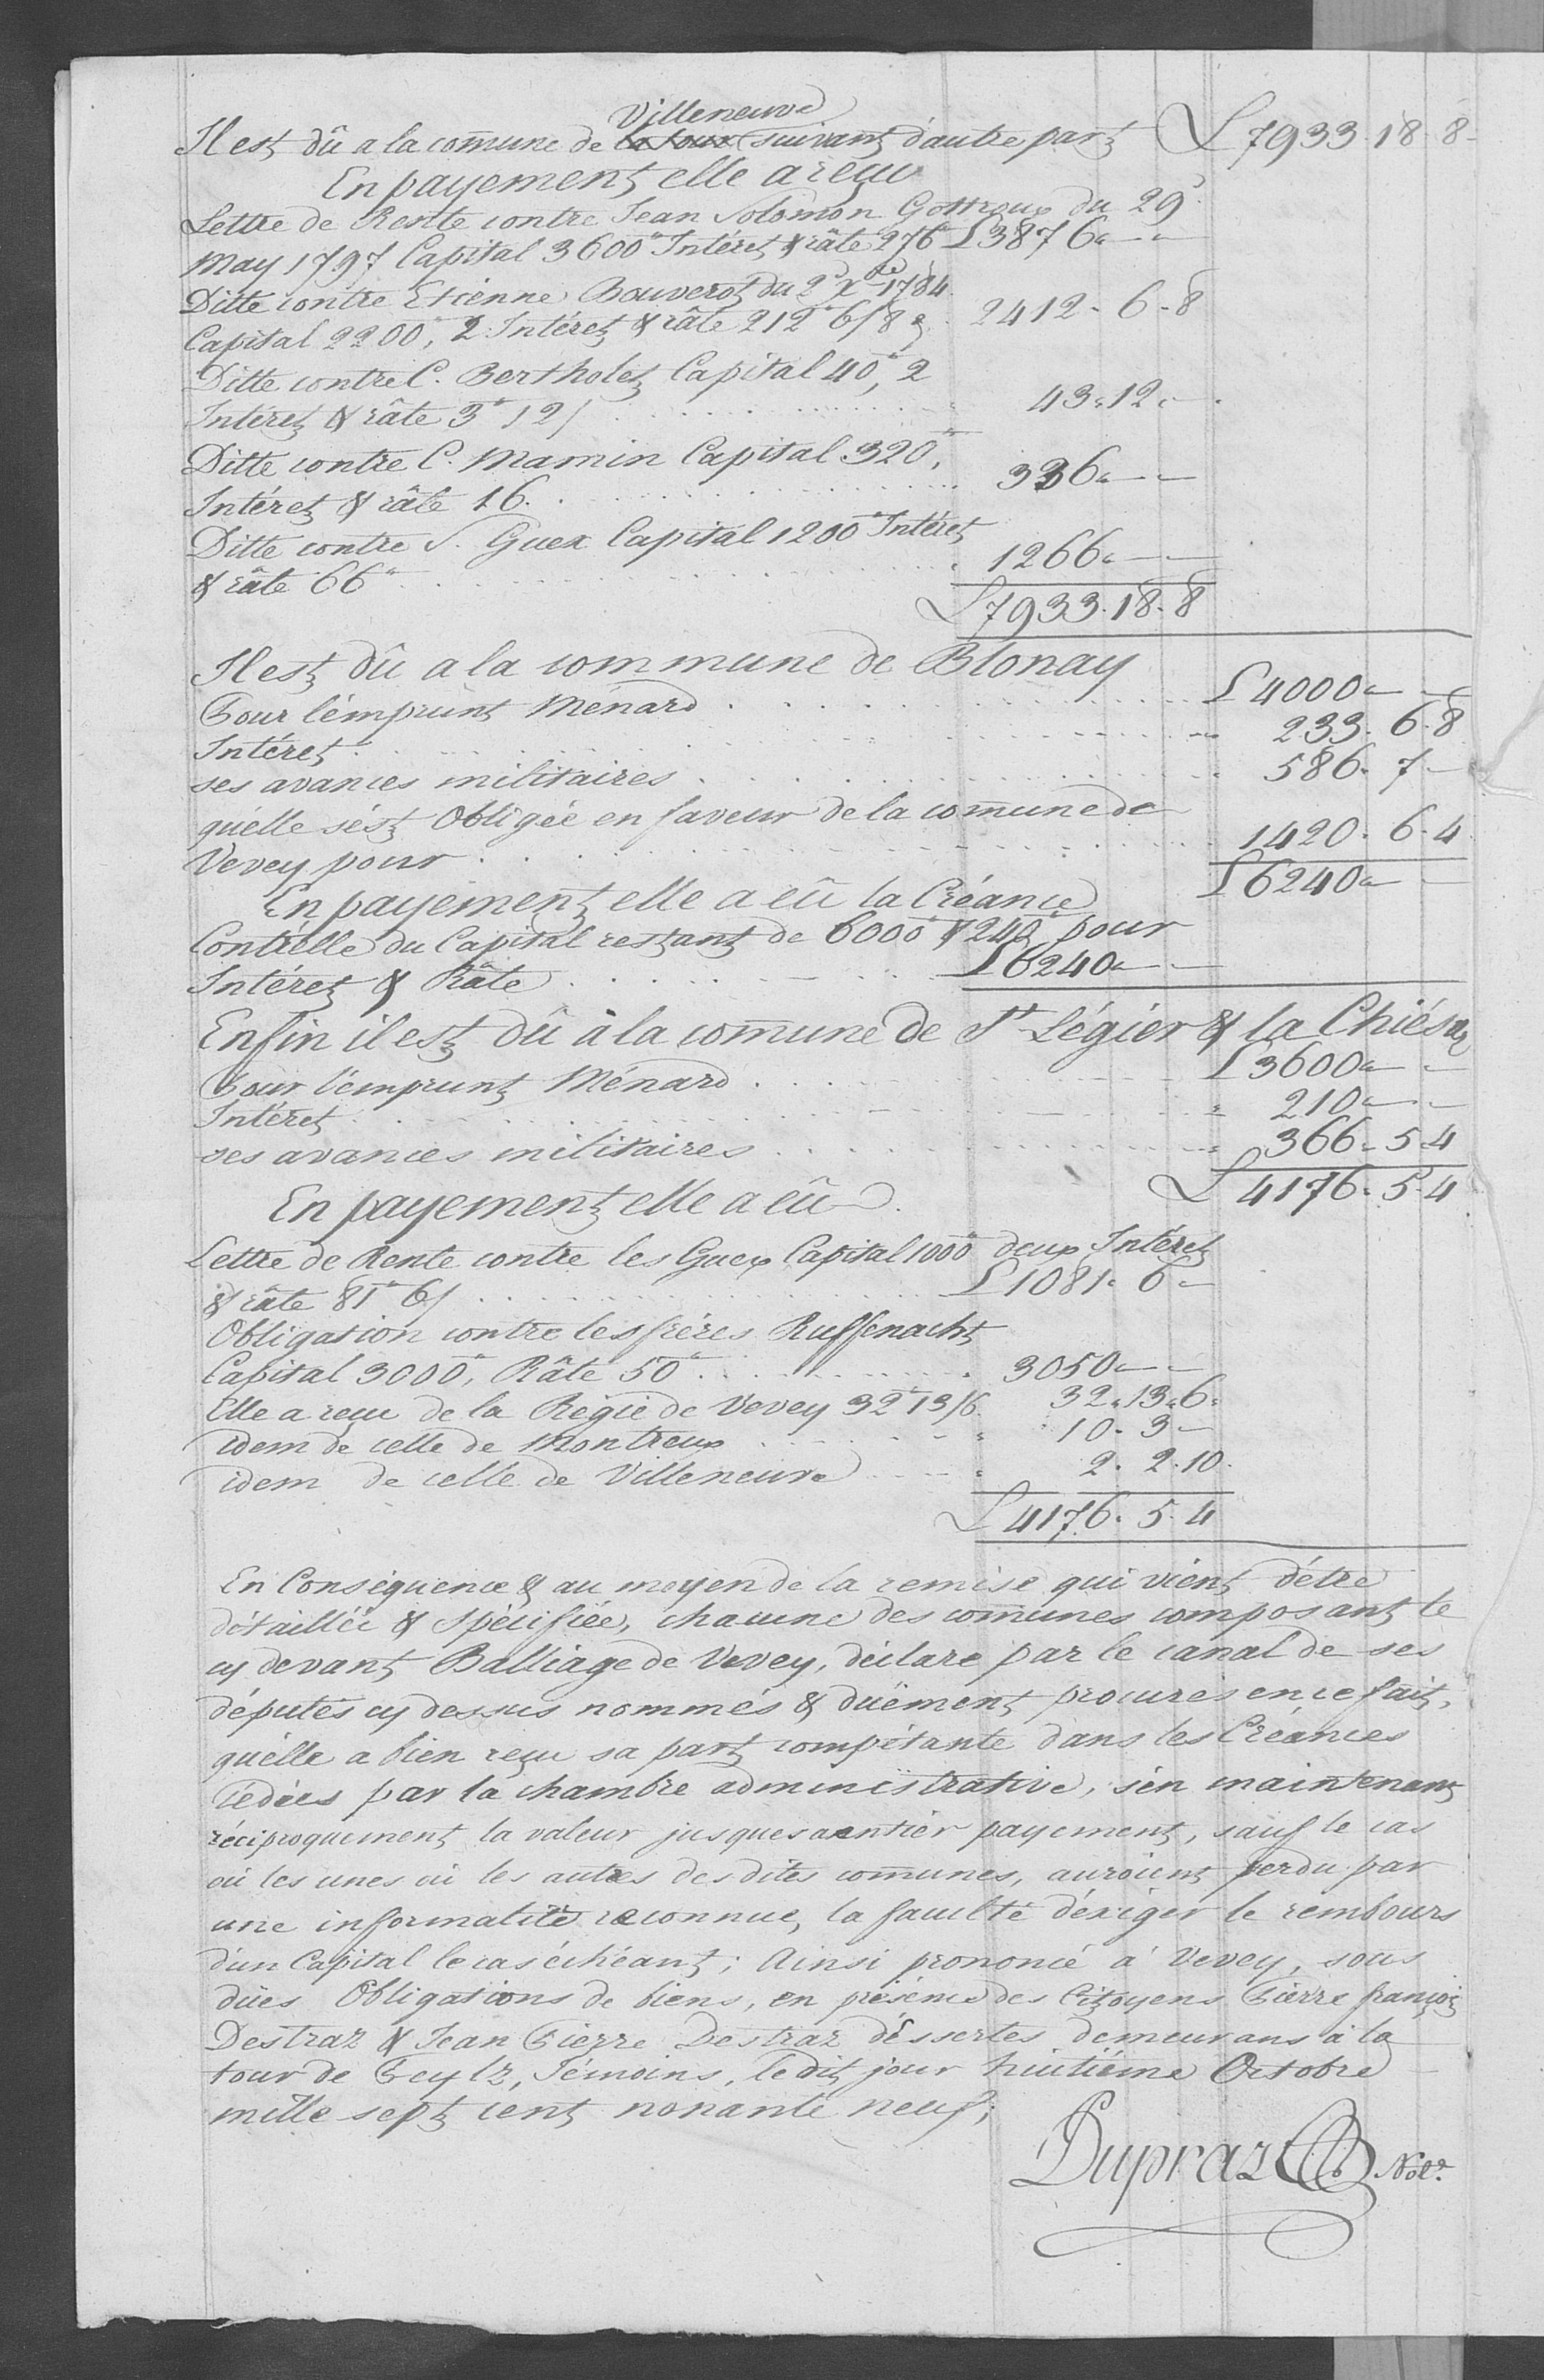 Villeneuve
Il est dû a la com̄une de la tour suivant d'autre part L 7933. 18. 8
En payement elle a reçu
Lettre de Rente contre Jean Solomon Gottroux du 29
May 1797 Capital 3600 Intéret & râte 276 L 3876. — —
Ditte contre Etienne Bouverot du 2d Xbre 1784
Capital 2200, 2 Intéret & râte 212 6/8 2412. 6. 8
Ditte contre C. Bertholet Capital 40, 2
Intéret & râte 3 12/ 43. 12. —
Ditte contre C. Mamin Capital 320,
Intéret & râte 16. 336. — —
Ditte contre S. Guex Capital 1200 Intéret
& râte 66 1266. — —
L 7933. 18. 8
Il est dû a la commune de Blonay
Pour l'émprunt Ménard L 4000. — —
Intéret 233. 6. 8
ses avances militaires 586. 7 —
qu'elle s'ést Obligée en faveur de la com̄une de
Vevey pour 1420. 6. 4
L 6240. —
En payement elle a eû la Créance
Contr'elle du Capital restant de 6000 & 240 pour
Intéret & Râte L 6240. —
Enfin il est dû à la com̄une de St Légier & la Chiésaz
Pour l'émprunt Ménard L 3600. — —
Intéret 210. — —
ses avances militaires 366. 5. 4
L 4176. 5. 4
En payement elle a eû
Lettre de Rente contre les Guex Capital 1000 deux Intéret
& râte 81 6/ L 1081. 6 —
Obligation contre les frères Ruffenacht
Capital 3000, Râte 50 3050. — —
Elle a reçu de la Régie de Vevey 32 13/6 32. 13. 6.
idem de celle de Montreux 10. 3 —
idem de celle de Villeneuve 2. 2. 10.
L 4176. 5. 4
En Conséquence & au moyen de la remise qui vient d'étre
détaillée & Spécifiée, chacune des com̄unes composant le
cy devant Balliage de Vevey, déclare par le canal de ses
députés cy dessus nommés & düement procurés en ce fait,
qu'elle a bien reçu sa part compétante dans les Créances
Cédées par la chambre administrative, s'en maintenant
réciproquement la valeur jusques a entiér payement, sauf le cas
où les unes où les autres des dites com̄unes, auroient perdu par
une informalité reconnue, la faculté d'éxiger le rembours
d'un Capital le cas échéant; Ainsi prononcé à Vevey, sous
dües Obligations de biens, en présence des Citoyens Pierre françois
Destraz & Jean Pierre Destraz d'éssertes demeurans à la
tour de Peylz, Témoins, le dit jour huitième Octobre
mille sept cent nonante neuf;
Dupraz Not.